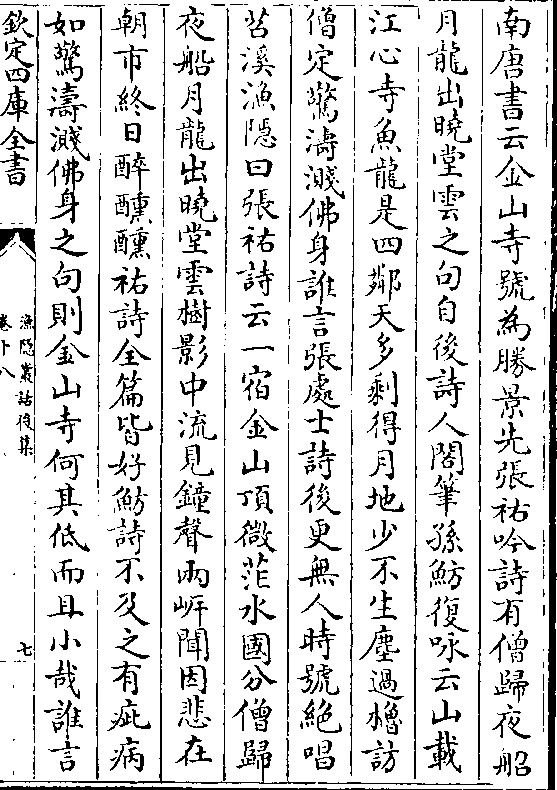 南唐書云金山寺號為勝景先張祐吟詩有僧歸夜船
月龍出曉堂雲之句自後詩人閣筆孫魴復咏云山載
江心寺魚龍是四鄰天多剩得月地少不生塵過櫓訪
僧定驚濤濺佛身誰言張處士詩後更無人時號絶唱
苕溪漁隠曰張祐詩云一宿金山頂微茫水國分僧歸
夜船月龍出曉堂雲樹影中流見鐘聲兩岸聞因悲在
朝市終日醉醺醺祐詩全篇皆好魴詩不及之有疵病
如驚濤濺佛身之句則金山寺何其低而且小哉誰言
欽定四庫全書
漁隠叢話後集
卷十八
七